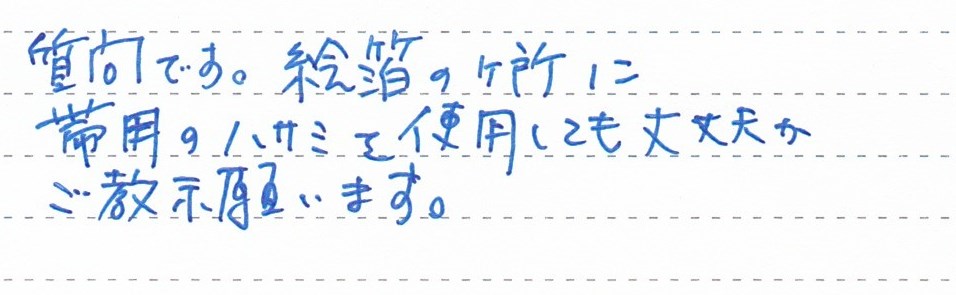 質問です。絵箔のケ所に
帯用のハサミを使用しても丈丈夫か
ご教示願います。